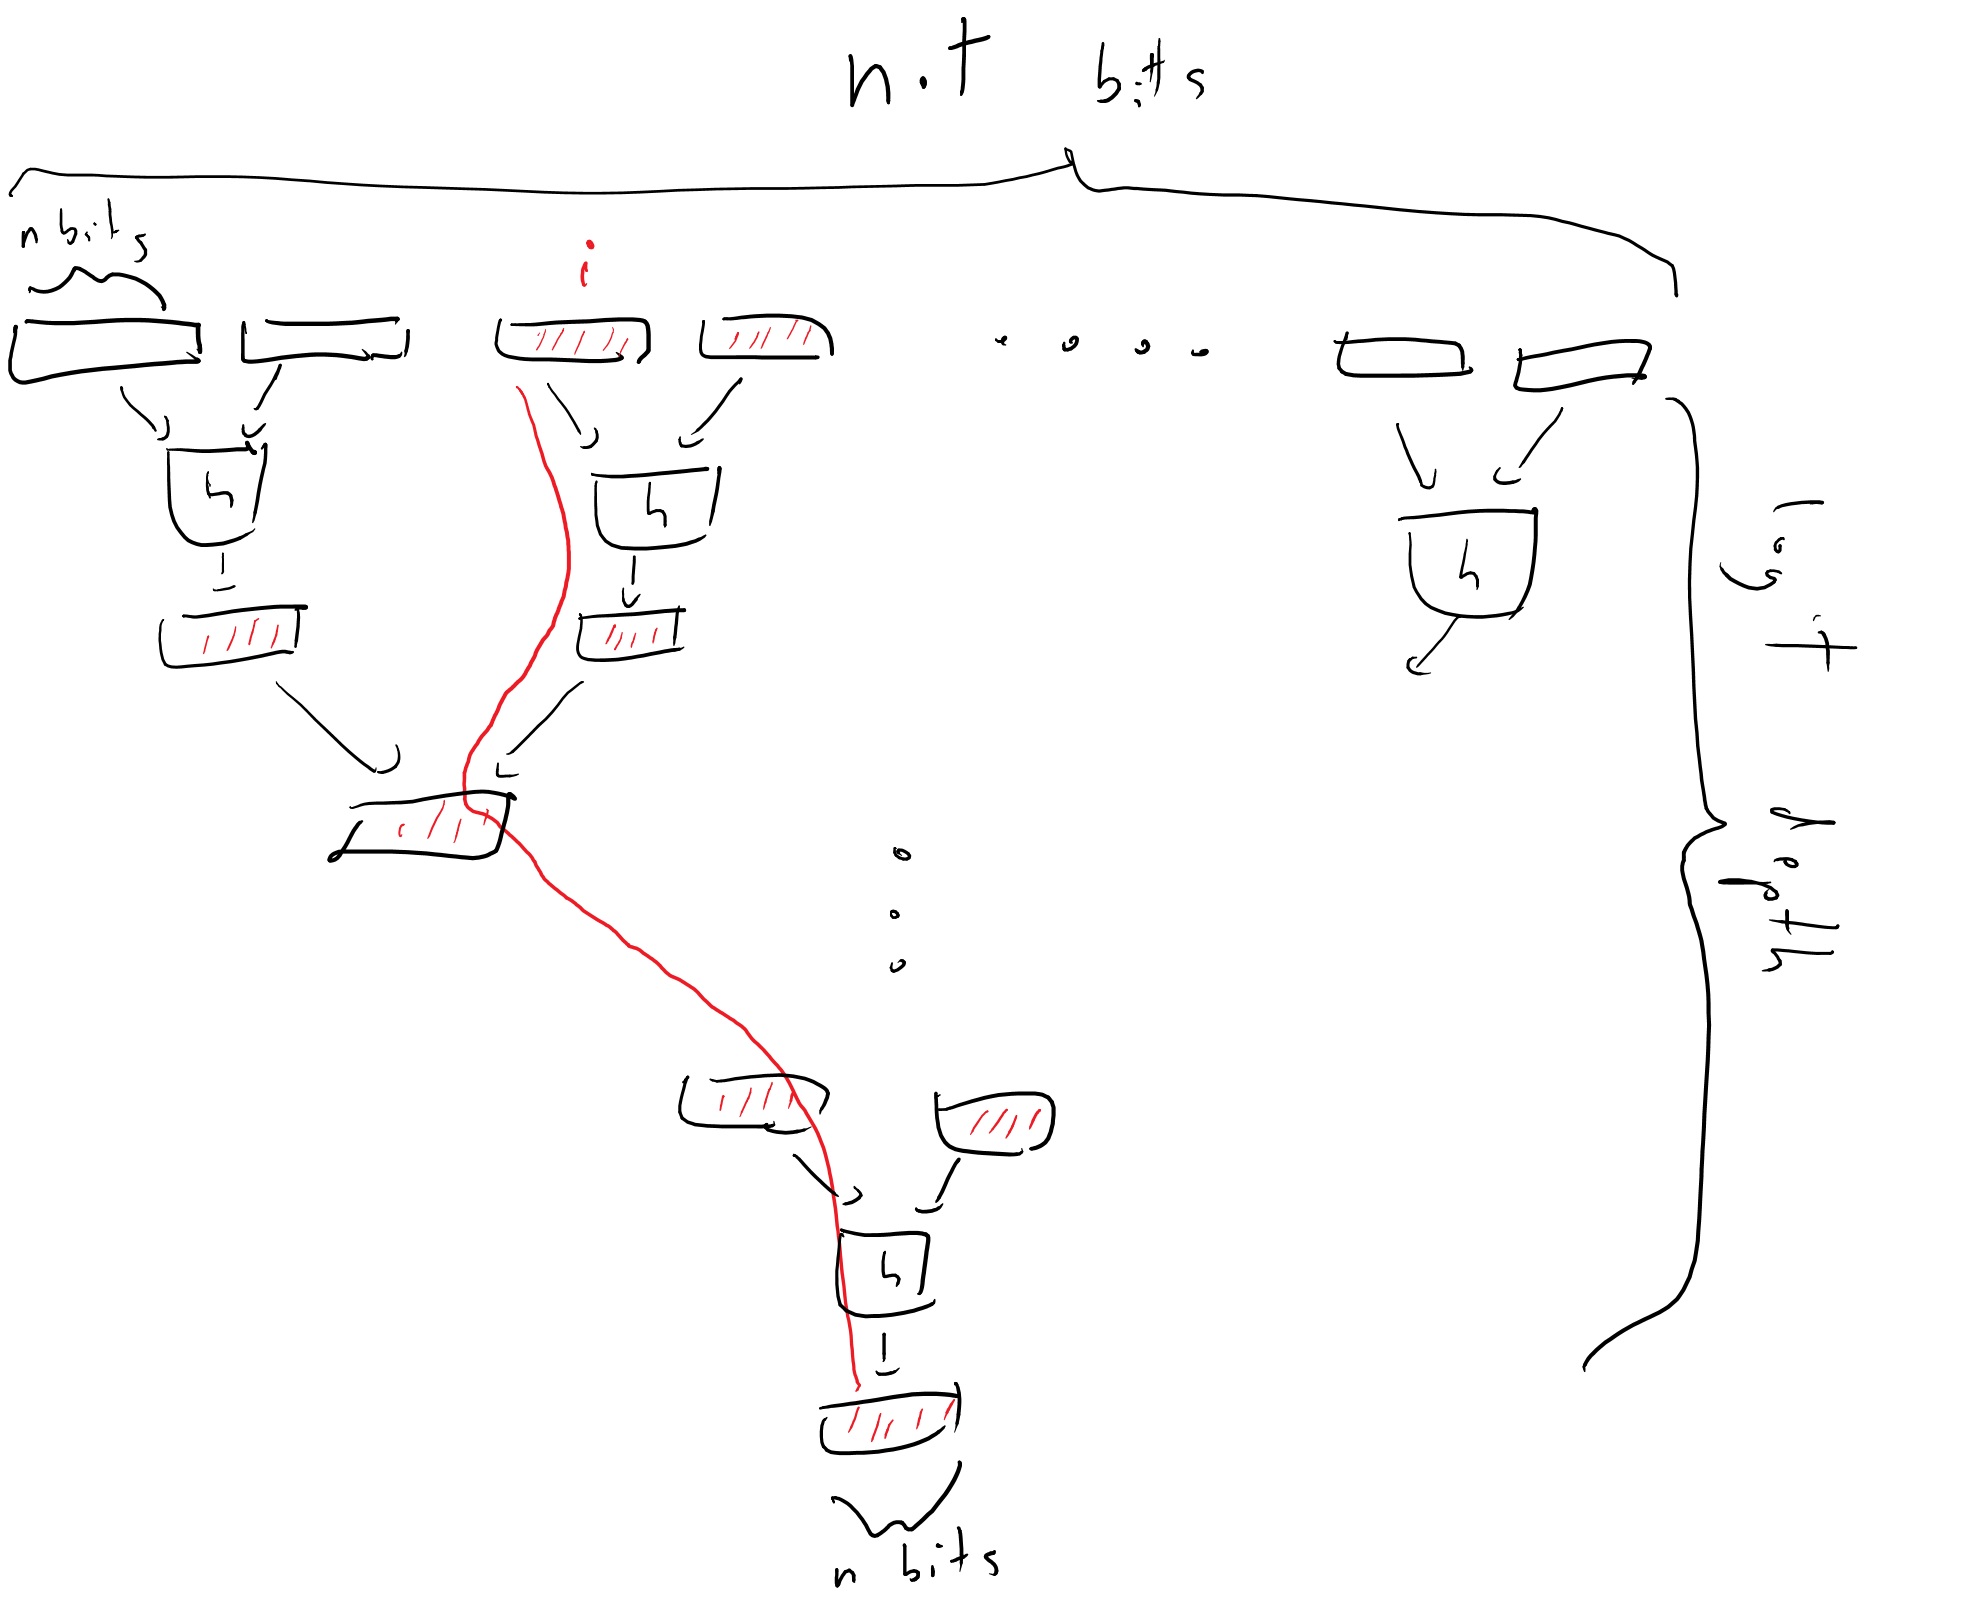 n.t bits
n bits
i
h
h
h
log t depth
h
n bits